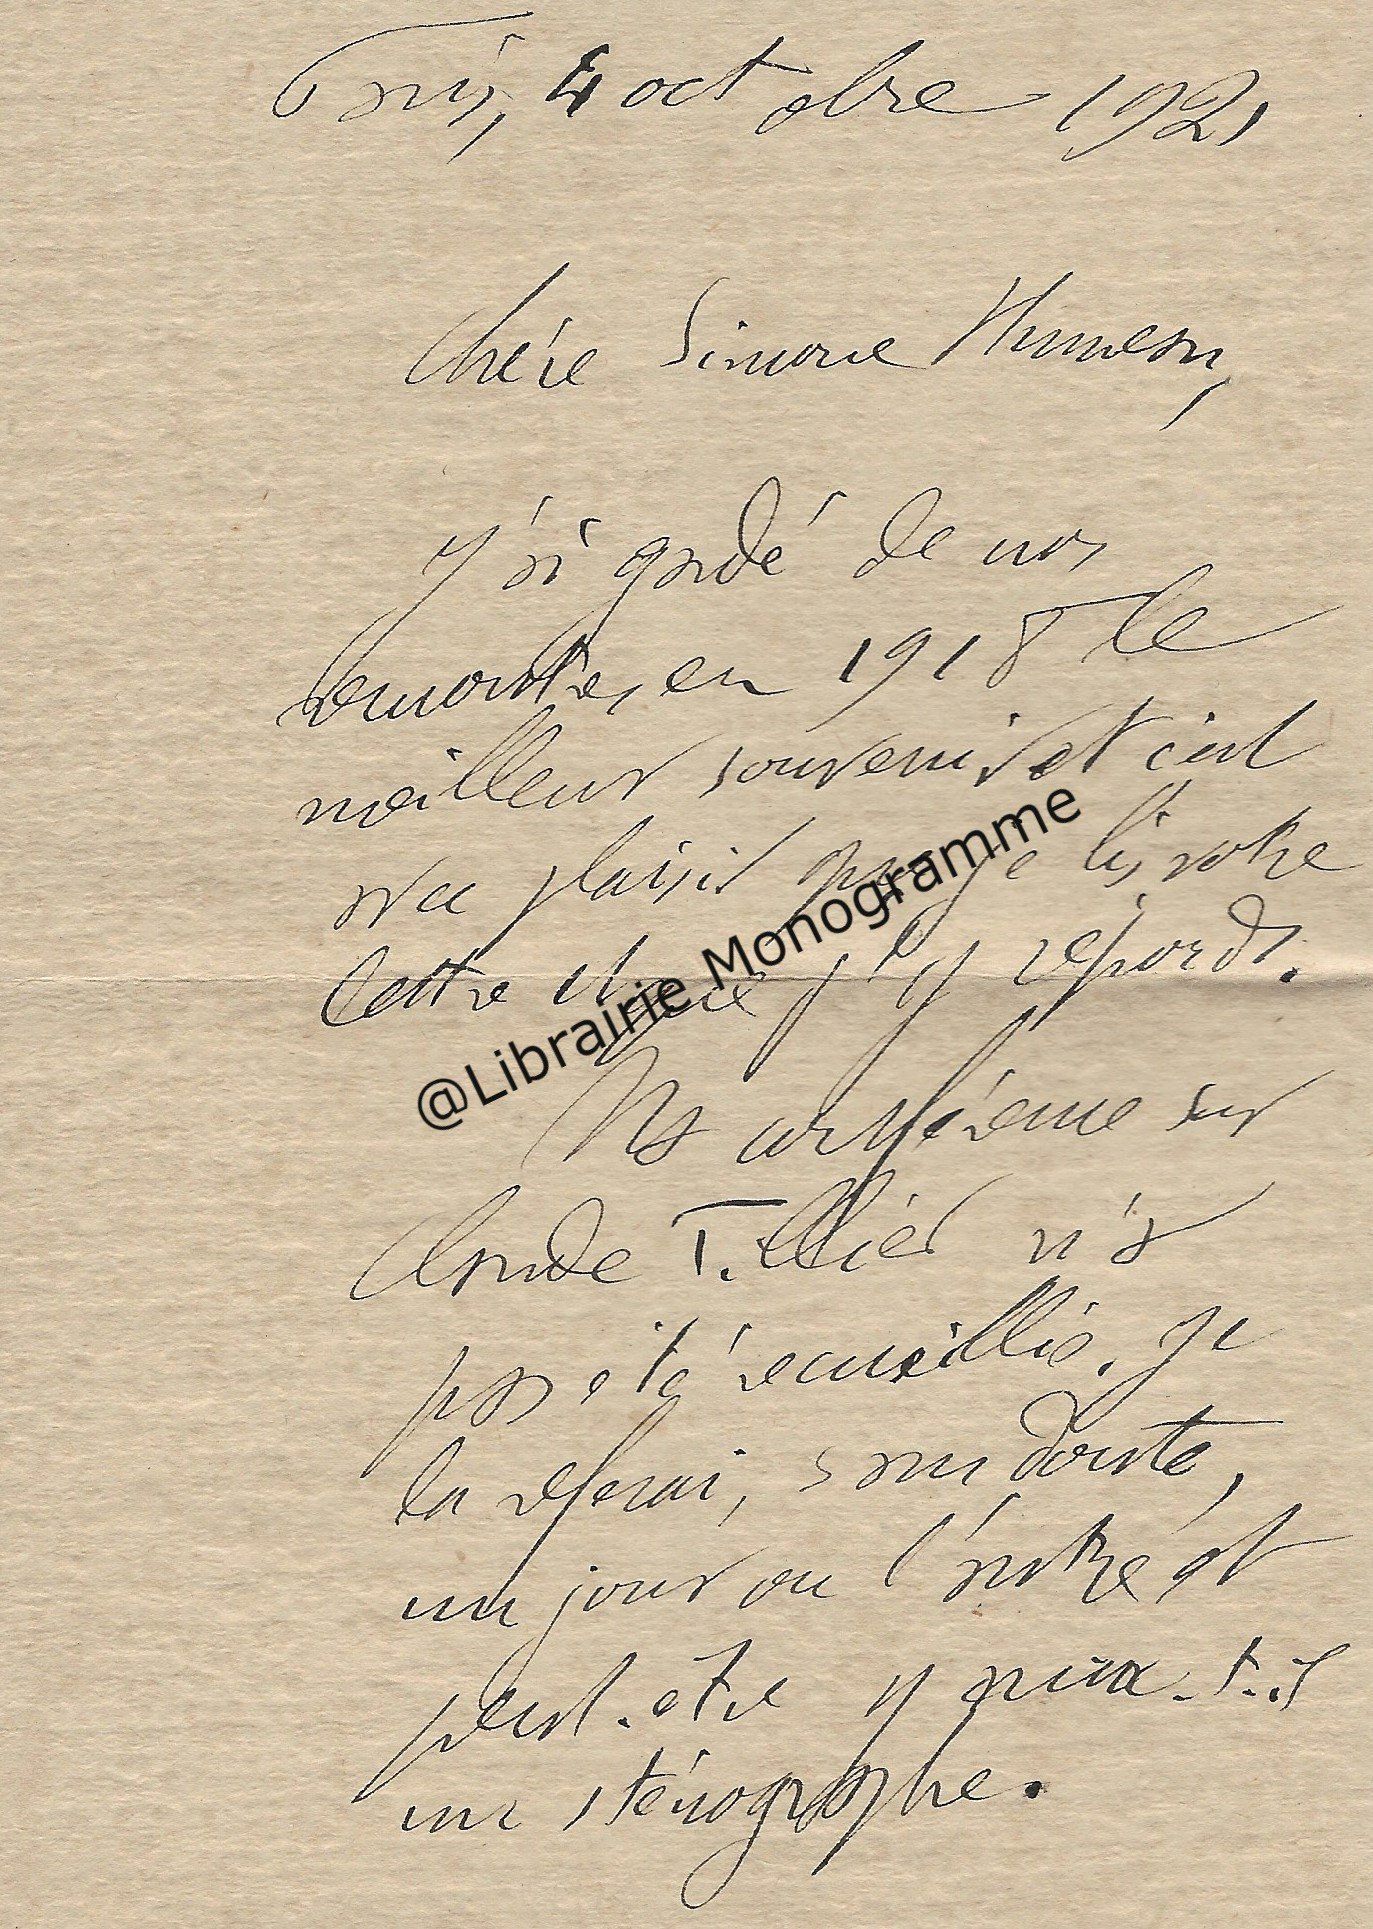 Paris, 4 octobre 1921
Chère Simone Humeau,
J'ai gardé de nos
rencontres, en 1918 le
meilleur souvenir et c'est
avec plaisir que je lis votre
lettre et que j'y réponds.
@Librairie Monogramme
Ma conférence sur
Claude Tillier n'a
pas été recueillie. Je
la referai, sans doute,
un jour ou l'autre et
peut-être y aura-t-il
un sténographe.